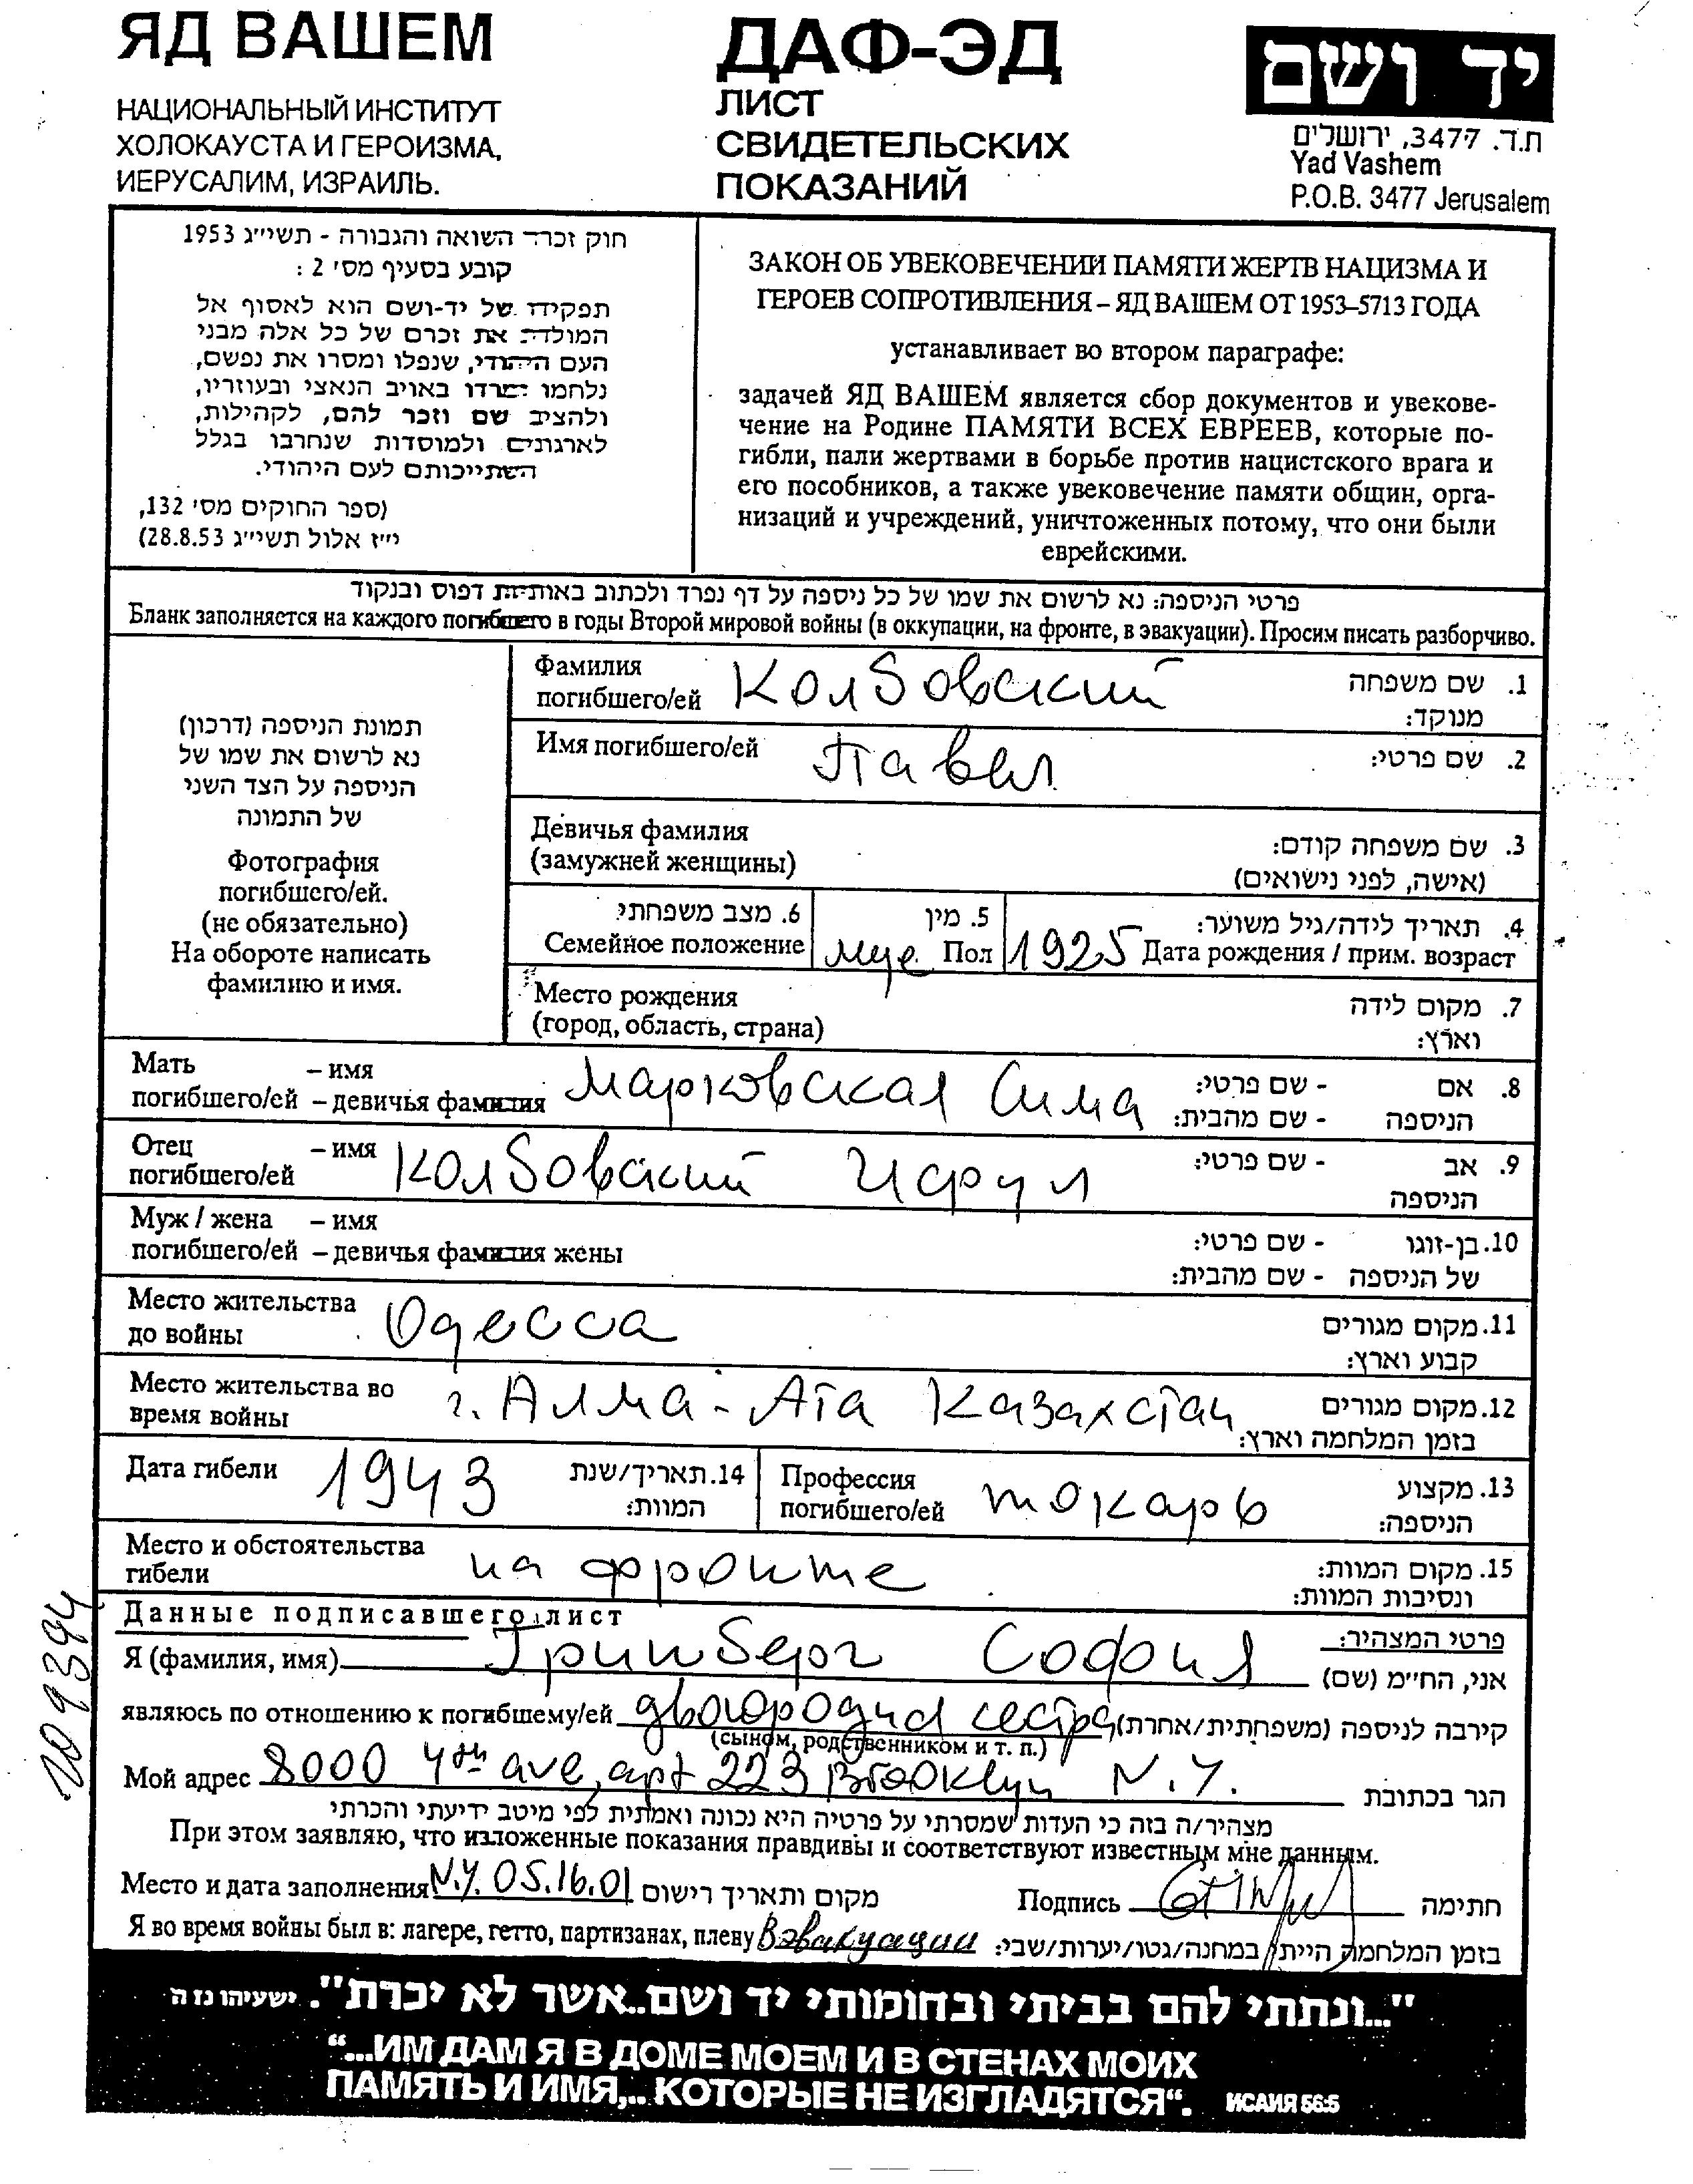 ЯД ВАШЕМ
НАЦИОНАЛЬНЫЙ ИНСТИТУТ
ХОЛОКАУСТА И ГЕРОИЗМА,
ИЕРУСАЛИМ, ИЗРАИЛЬ.
ДАФ-ЭД
ЛИСТ
СВИДЕТЕЛЬСКИХ
ПОКАЗАНИЙ
יד ושם
ת.ד. 3477, ירושלים
Yad Vashem
P.O.B. 3477 Jerusalem
חוק זכרון השואה והגבורה - תשי״ג 1953
קובע בסעיף מס׳ 2 :
תפקידו של יד-ושם הוא לאסוף אל
המולדת את זכרם של כל אלה מבני
העם היהודי, שנפלו ומסרו את נפשם,
נלחמו ומרדו באויב הנאצי ובעוזריו,
ולהציב שם וזכר להם, לקהילות,
לארגונים ולמוסדות שנחרבו בגלל
השתייכותם לעם היהודי.
(ספר החוקים מס׳ 132,
י״ז אלול תשי״ג 28.8.53)
ЗАКОН ОБ УВЕКОВЕЧЕНИИ ПАМЯТИ ЖЕРТВ НАЦИЗМА И
ГЕРОЕВ СОПРОТИВЛЕНИЯ – ЯД ВАШЕМ ОТ 1953–5713 ГОДА
устанавливает во втором параграфе:
задачей ЯД ВАШЕМ является сбор документов и увекове-
чение на Родине ПАМЯТИ ВСЕХ ЕВРЕЕВ, которые по-
гибли, пали жертвами в борьбе против нацистского врага и
его пособников, а также увековечение памяти общин, орга-
низаций и учреждений, уничтоженных потому, что они были
еврейскими.
פרטי הניספה: נא לרשום את שמו של כל ניספה על דף נפרד ולכתוב באותיות דפוס ובנקוד
Бланк заполняется на каждого погибшего в годы Второй мировой войны (в оккупации, на фронте, в эвакуации). Просим писать разборчиво.
תמונת הניספה (דרכון)
נא לרשום את שמו של
הניספה על הצד השני
של התמונה
Фотография
погибшего/ей.
(не обязательно)
На обороте написать
фамилию и имя.
Фамилия
погибшего/ей Колбовский
1. שם משפחה
מנוקד:
Имя погибшего/ей Павел
2. שם פרטי:
Девичья фамилия
(замужней женщины)
3. שם משפחה קודם:
(אישה, לפני נישואים)
6. מצב משפחתי:
Семейное положение
5. מין
муж. Пол
4. תאריך לידה/גיל משוער:
1925 Дата рождения / прим. возраст
Место рождения
(город, область, страна)
7. מקום לידה
וארץ:
Мать – имя
погибшего/ей – девичья фамилия Марковская Сима
8. אם - שם פרטי:
הניספה - שם מהבית:
Отец – имя
погибшего/ей Колбовский Исрул
9. אב - שם פרטי:
הניספה
Муж / жена – имя
погибшего/ей – девичья фамилия жены
10. בן-זוגו - שם פרטי:
של הניספה - שם מהבית:
Место жительства
до войны Одесса
11. מקום מגורים
קבוע וארץ:
Место жительства во
время войны г. Алма-Ата Казахстан
12. מקום מגורים
בזמן המלחמה וארץ:
Дата гибели 1943
14. תאריך/שנת
המוות:
Профессия
погибшего/ей токарь
13. מקצוע
הניספה:
Место и обстоятельства
гибели на фронте
15. מקום המוות:
ונסיבות המוות:
109394
Данные подписавшего лист
פרטי המצהיר:
Я (фамилия, имя) Гринберг София אני, הח״מ (שם)
являюсь по отношению к погибшему/ей двоюродная сестра קירבה לניספה (משפחתית/אחרת)
(сыном, родственником и т. п.)
Мой адрес 8000 4th ave, apt 223 Brooklyn N.Y. הגר בכתובת
מצהיר/ה בזה כי העדות שמסרתי על פרטיה היא נכונה ואמתית לפי מיטב ידיעתי והכרתי
При этом заявляю, что изложенные показания правдивы и соответствуют известным мне данным.
Место и дата заполнения N.Y. 05.16.01 מקום ותאריך רישום Подпись חתימה
Я во время войны был в: лагере, гетто, партизанах, плену в эвакуации בזמן המלחמה הייתי במחנה/גטו/יערות/שבי:
"...ונתתי להם בביתי ובחומותי יד ושם..אשר לא יכרת". ישעיהו נז ה
“...ИМ ДАМ Я В ДОМЕ МОЕМ И В СТЕНАХ МОИХ
ПАМЯТЬ И ИМЯ,.. КОТОРЫЕ НЕ ИЗГЛАДЯТСЯ“. ИСАИЯ 56:5